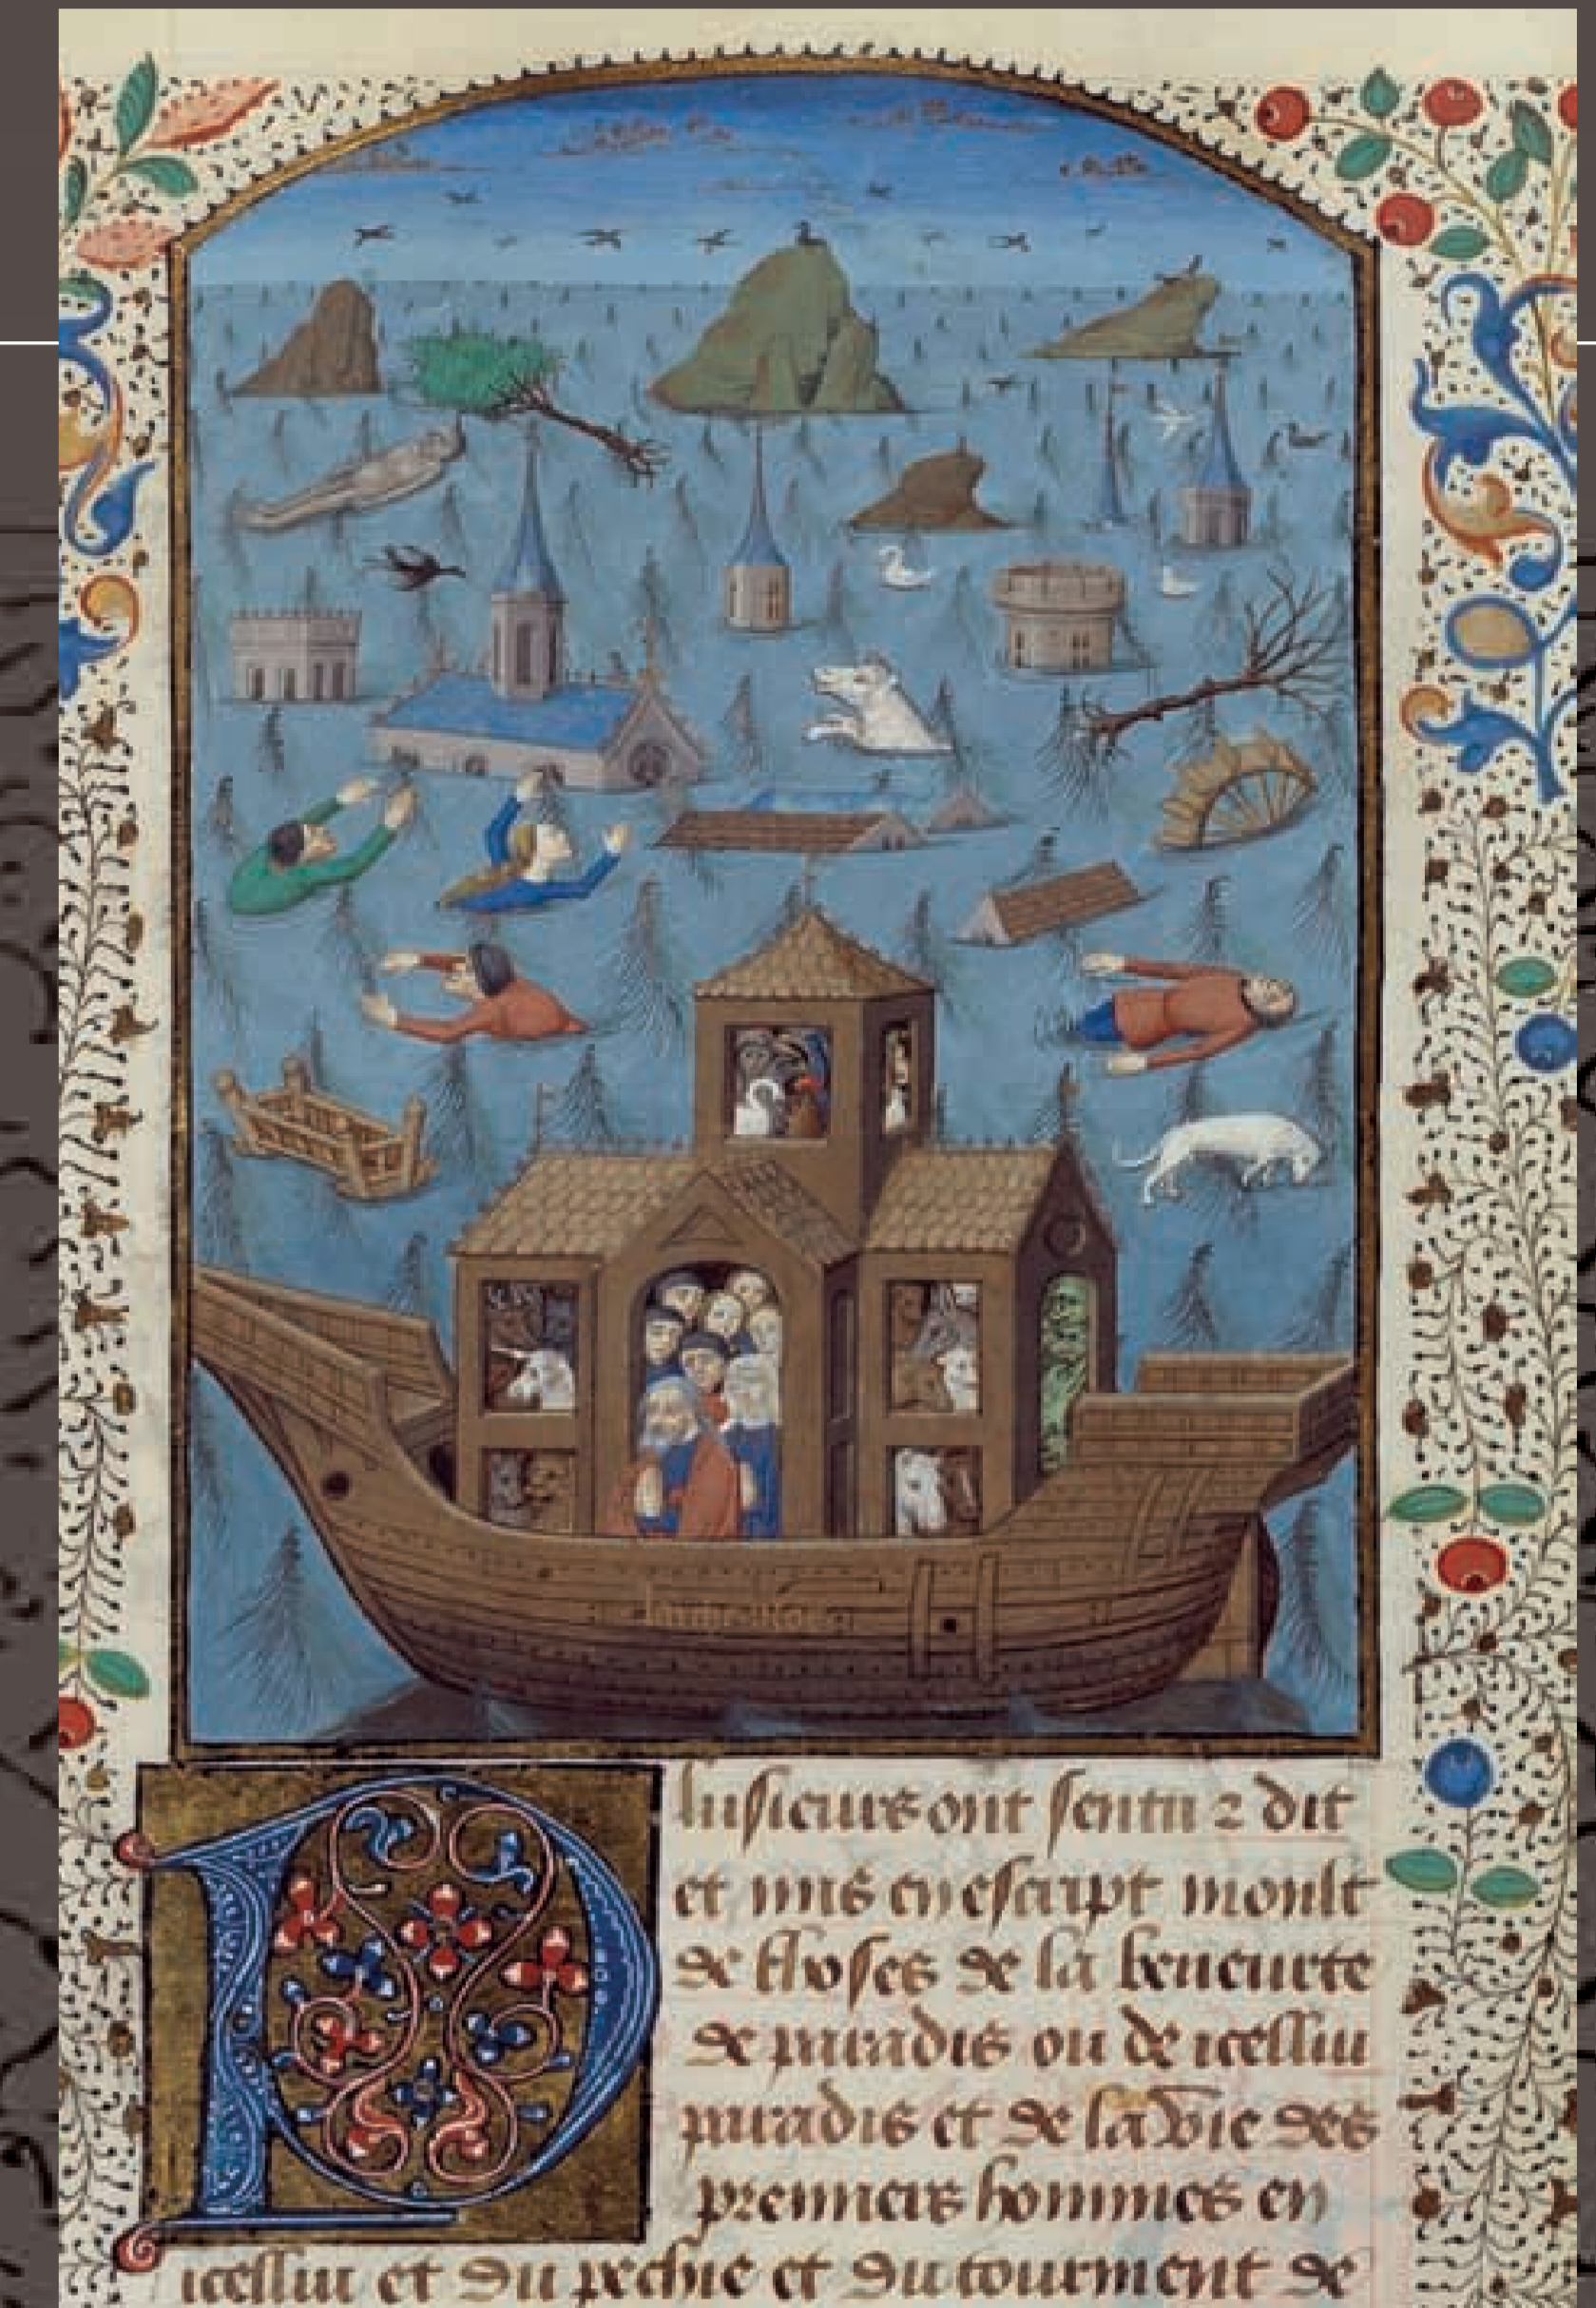 Plusieurs ont sentu ⁊ dit
et mis en escript moult
de choses de la beneurte
de paradis ou de icellui
paradis et de la vie des
premiers hommes en
icellui et du pechie et du tourment de